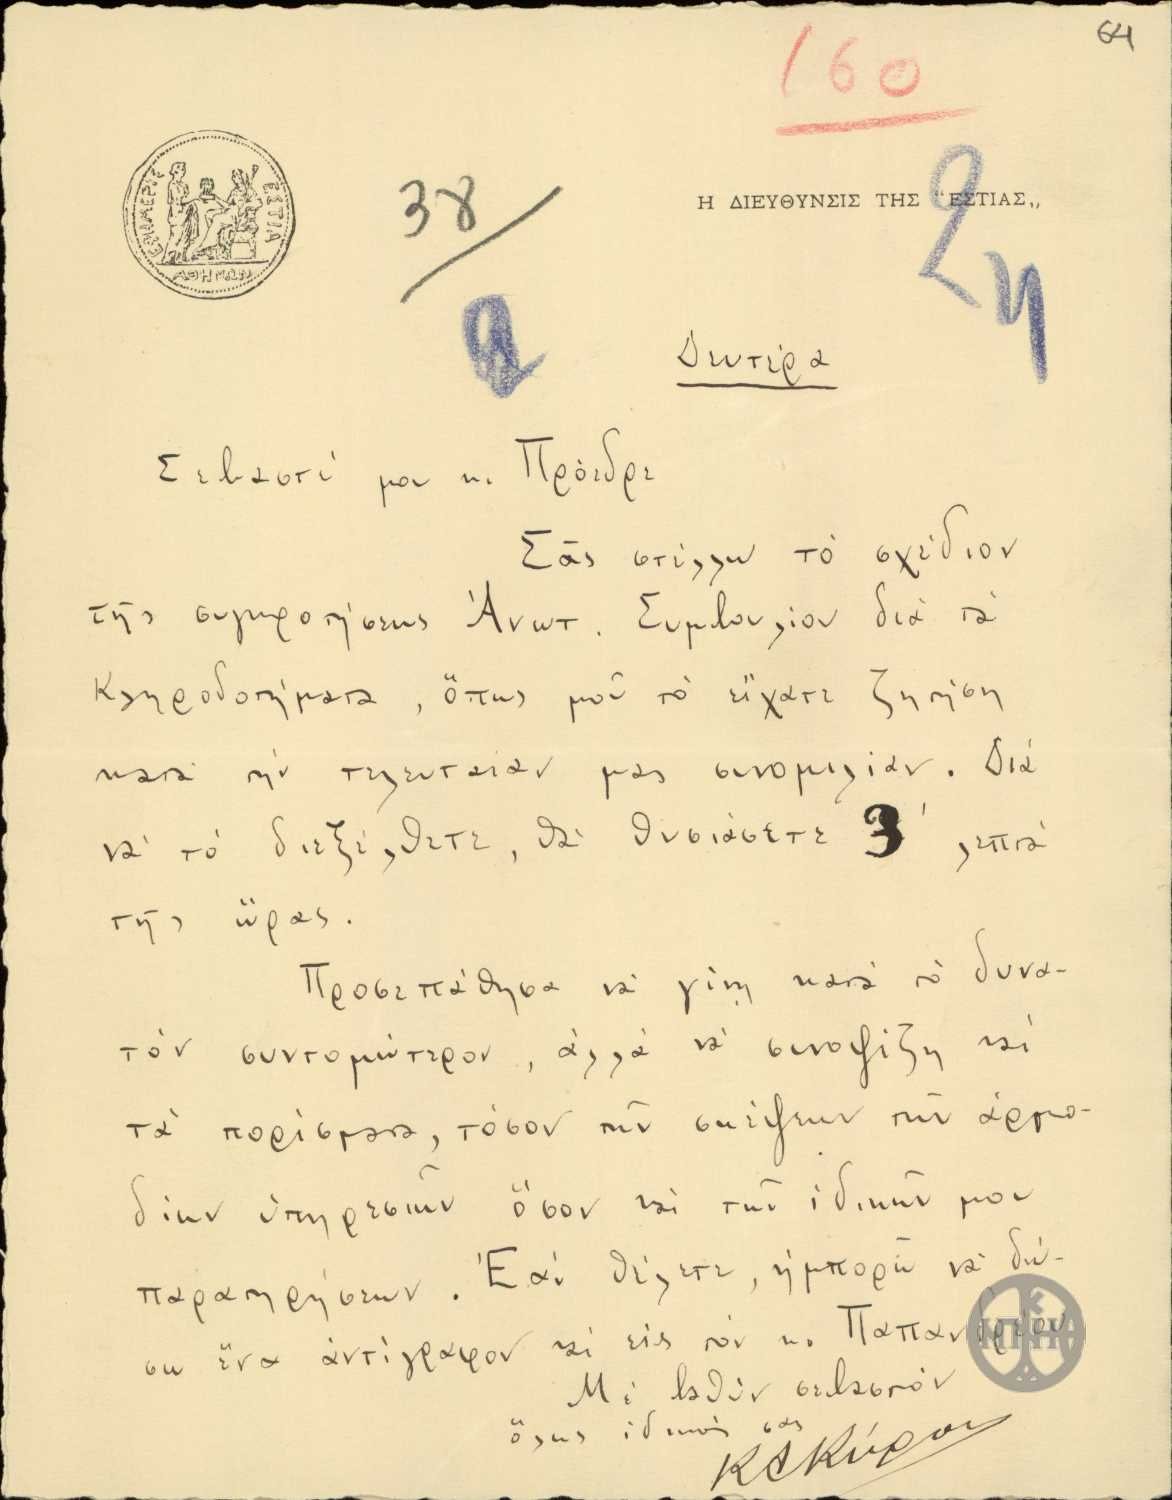 64
160
ΕΦΗΜΕΡΙΣ ΕΣΤΙΑ
ΑΘΗΝΩΝ
38
Η ΔΙΕΥΘΥΝΣΙΣ ΤΗΣ “ΕΣΤΙΑΣ„
Δευτέρα
Σεβαστέ μου κ. Πρόεδρε
Σᾶς στέλλω τὸ σχέδιον
τῆς συγκροτήσεως Ἀνωτ. Συμβουλίου διὰ τὰ
Κληροδοτήματα, ὅπως μοῦ τὸ εἴχατε ζητήση
κατὰ τὴν τελευταίαν μας συνομιλίαν. Διὰ
νὰ τὸ διεξέλθετε, θὰ θυσιάσετε 3' λεπτὰ
τῆς ὥρας.
Προσεπάθησα νὰ γίνῃ κατὰ τὸ δυνα-
τὸν συντομώτερον, ἀλλὰ νὰ συνοψίζη καὶ
τὰ πορίσματα, τόσον τῶν σκέψεων τῶν ἁρμο-
δίων ὑπηρεσιῶν ὅσον καὶ τῶν ἰδικῶν μου
παρατηρήσεων. Ἐὰν θέλετε, ἠμπορῶ νὰ δώ-
σω ἕνα ἀντίγραφον καὶ εἰς τὸν κ. Παπανδρέου
Μὲ βαθὺν σεβασμὸν
ὅλως ἰδικός σας
Κ Α Κύρου